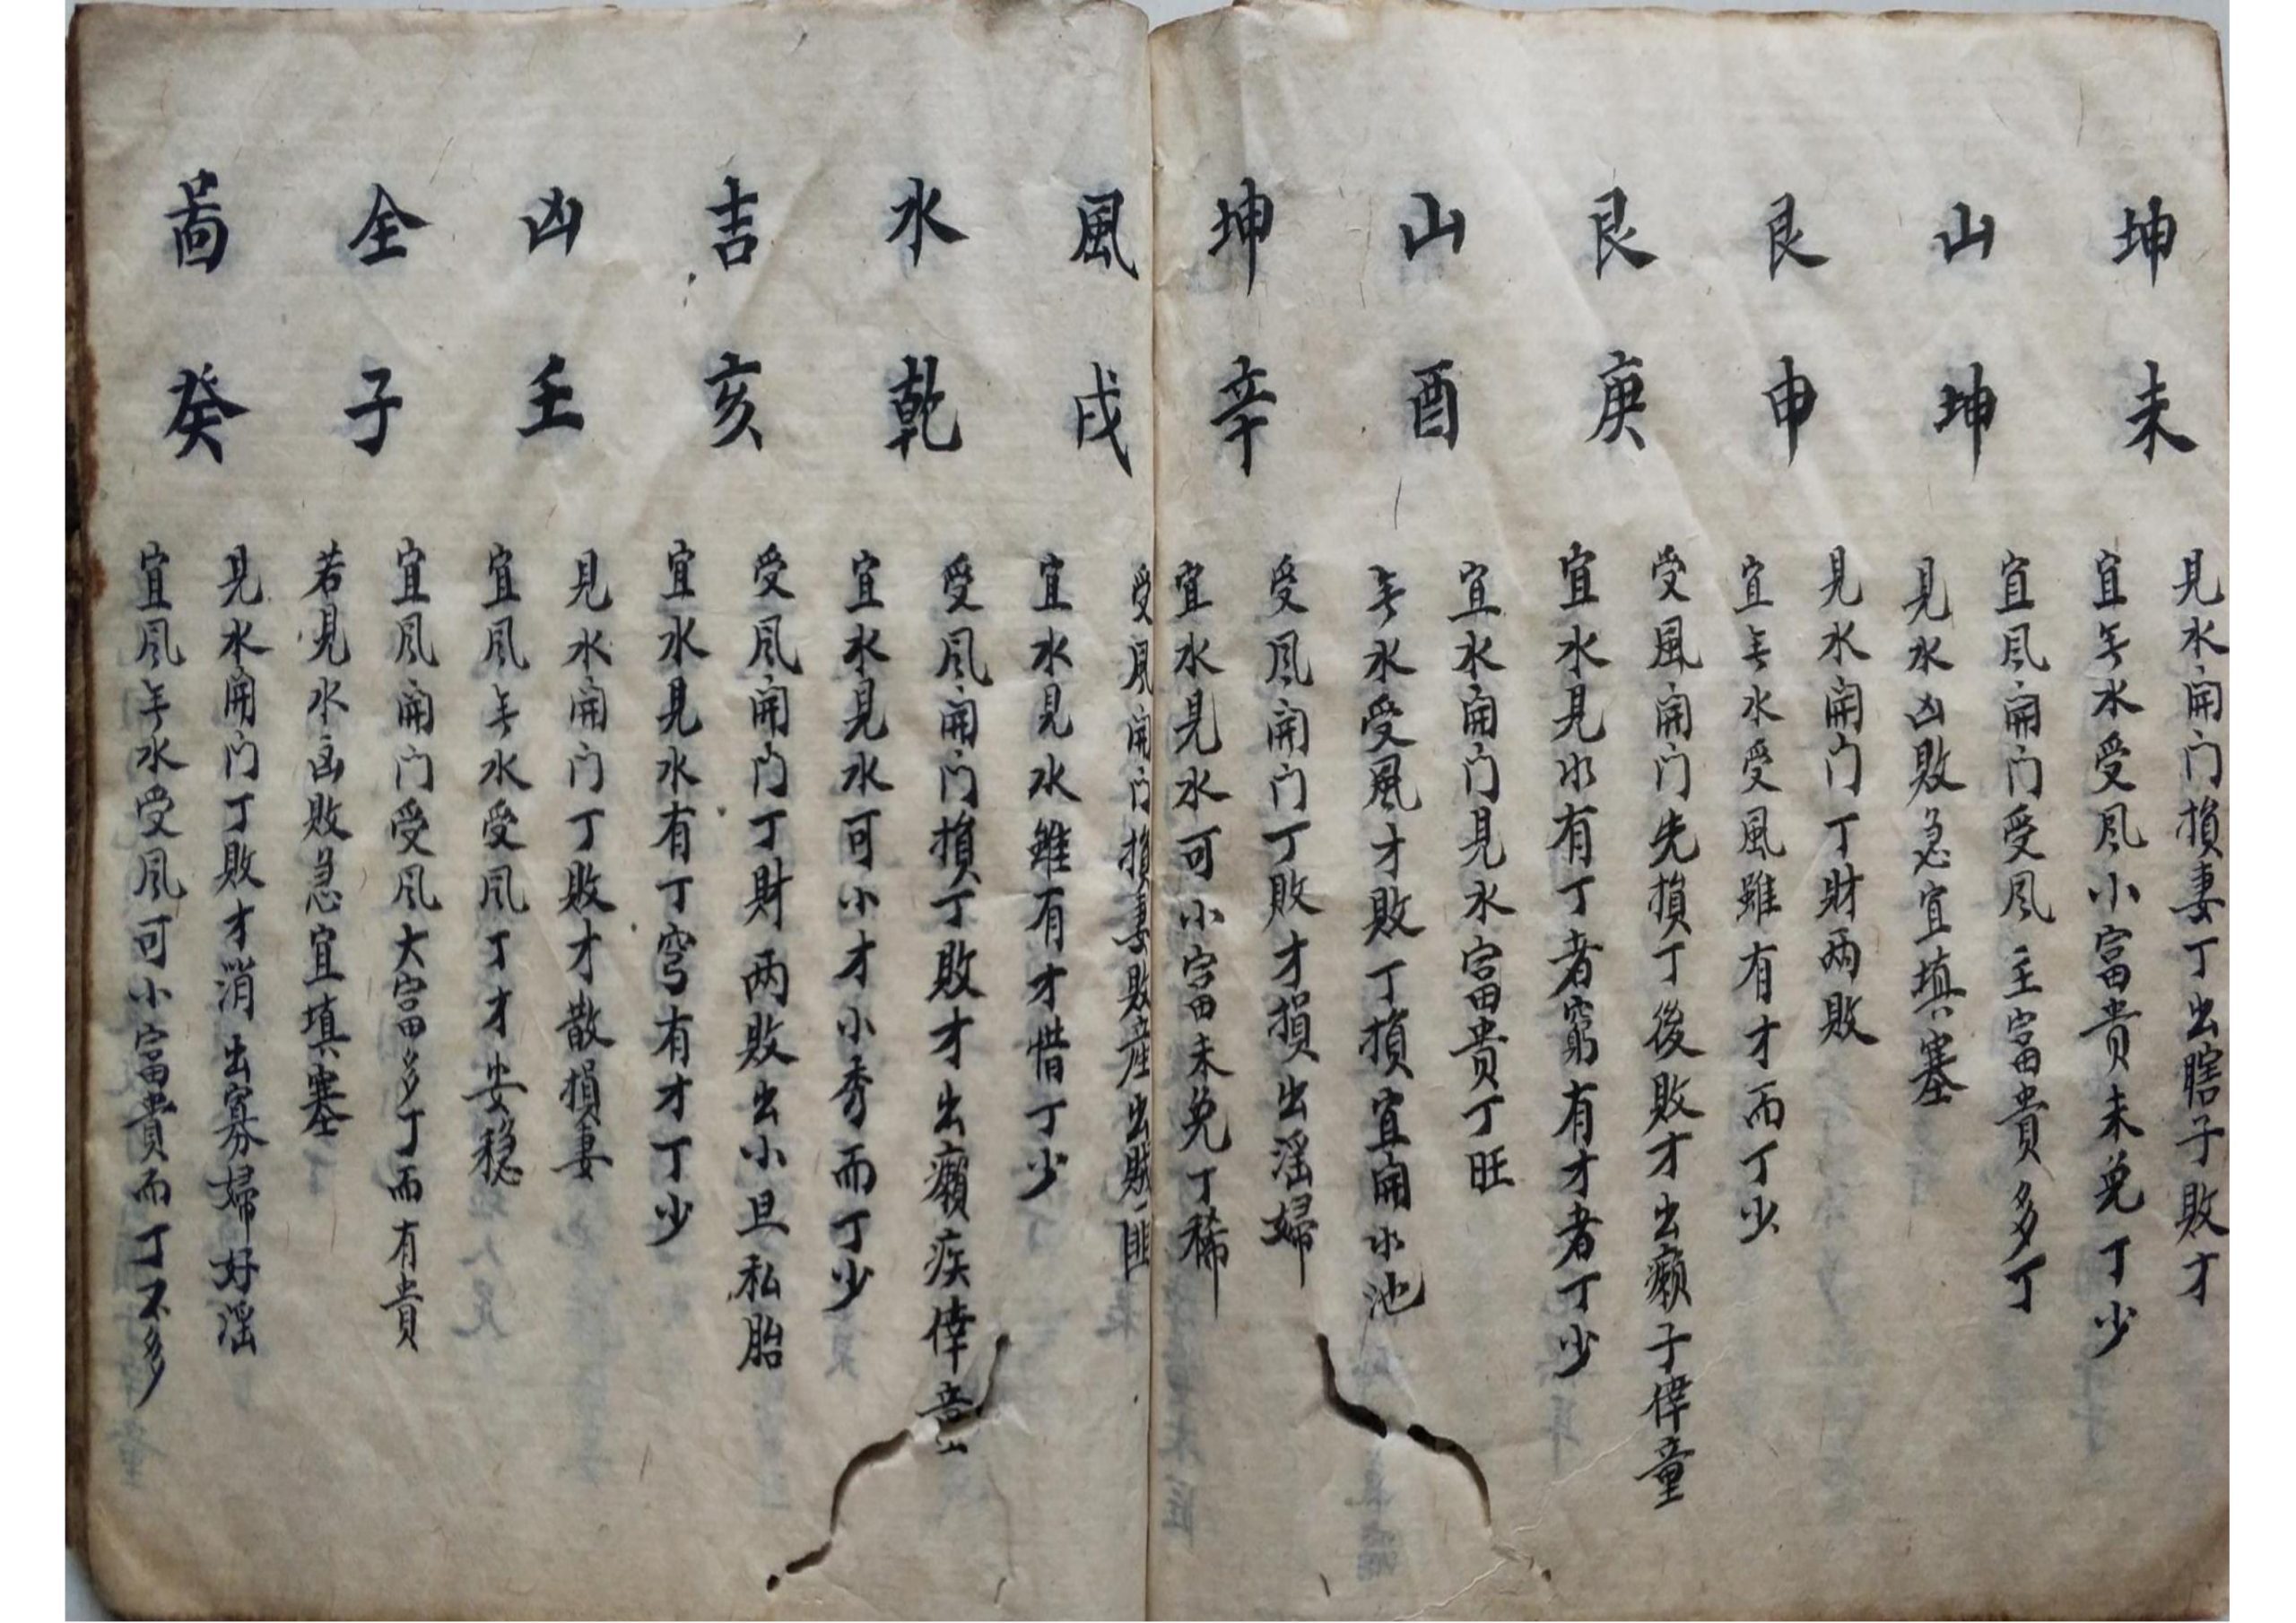 坤山艮艮山坤風水吉凶全啚
未坤申庚酉辛戌乾亥壬子癸
見水開门損妻丁出瞎子敗才
宜无水受風小富貴未免丁少
宜風開门受風主富貴多丁
見水凶敗急宜填塞
見水開门丁財两敗
宜无水受風雖有才而丁少
受風開门先損丁後敗才出癩子倖童
宜水見水有丁者窮有才者丁少
宜水開门見水富貴丁旺
无水受風才敗丁損宜開水池
受風開门丁敗才損出淫婦
宜水見水可小富未免丁稀
受風開门損妻敗產出賊匪
宜水見水雖有才惜丁少
受風開门損丁敗才出癩疾倖童
宜水見水可小才小秀而丁少
受風開门丁財两敗出小旦私胎
宜水見水有丁穷有才丁少
見水開门丁敗才散損妻
宜風无水受風丁才安穩
宜風開门受風大富多丁而有貴
若見水凶敗急宜填塞
見水開门丁敗才消出寡婦好淫
宜風无水受風可小富貴而丁不多